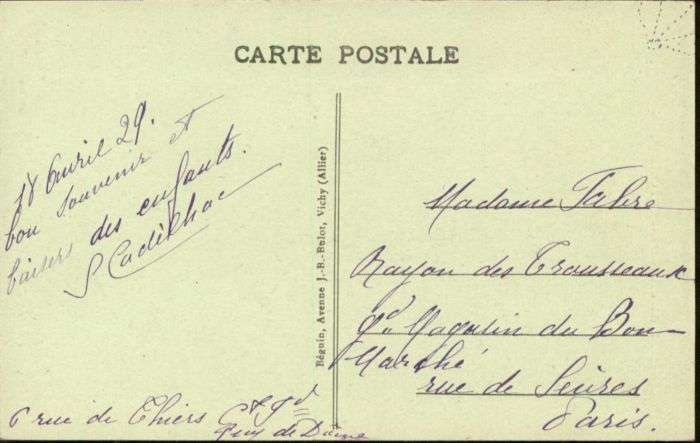 CARTE POSTALE
18 Avril 29.
bon souvenir et
baisers des enfants.
S Cadilhac
Béguin, Avenue J.-B.-Bulot, Vichy (Allier)
Madame Fabre
Rayon des Trousseaux
Gd Magasin du Bon-
Marché
rue de Sèvres
Paris.
6 rue de Thiers
Puy de Dôme